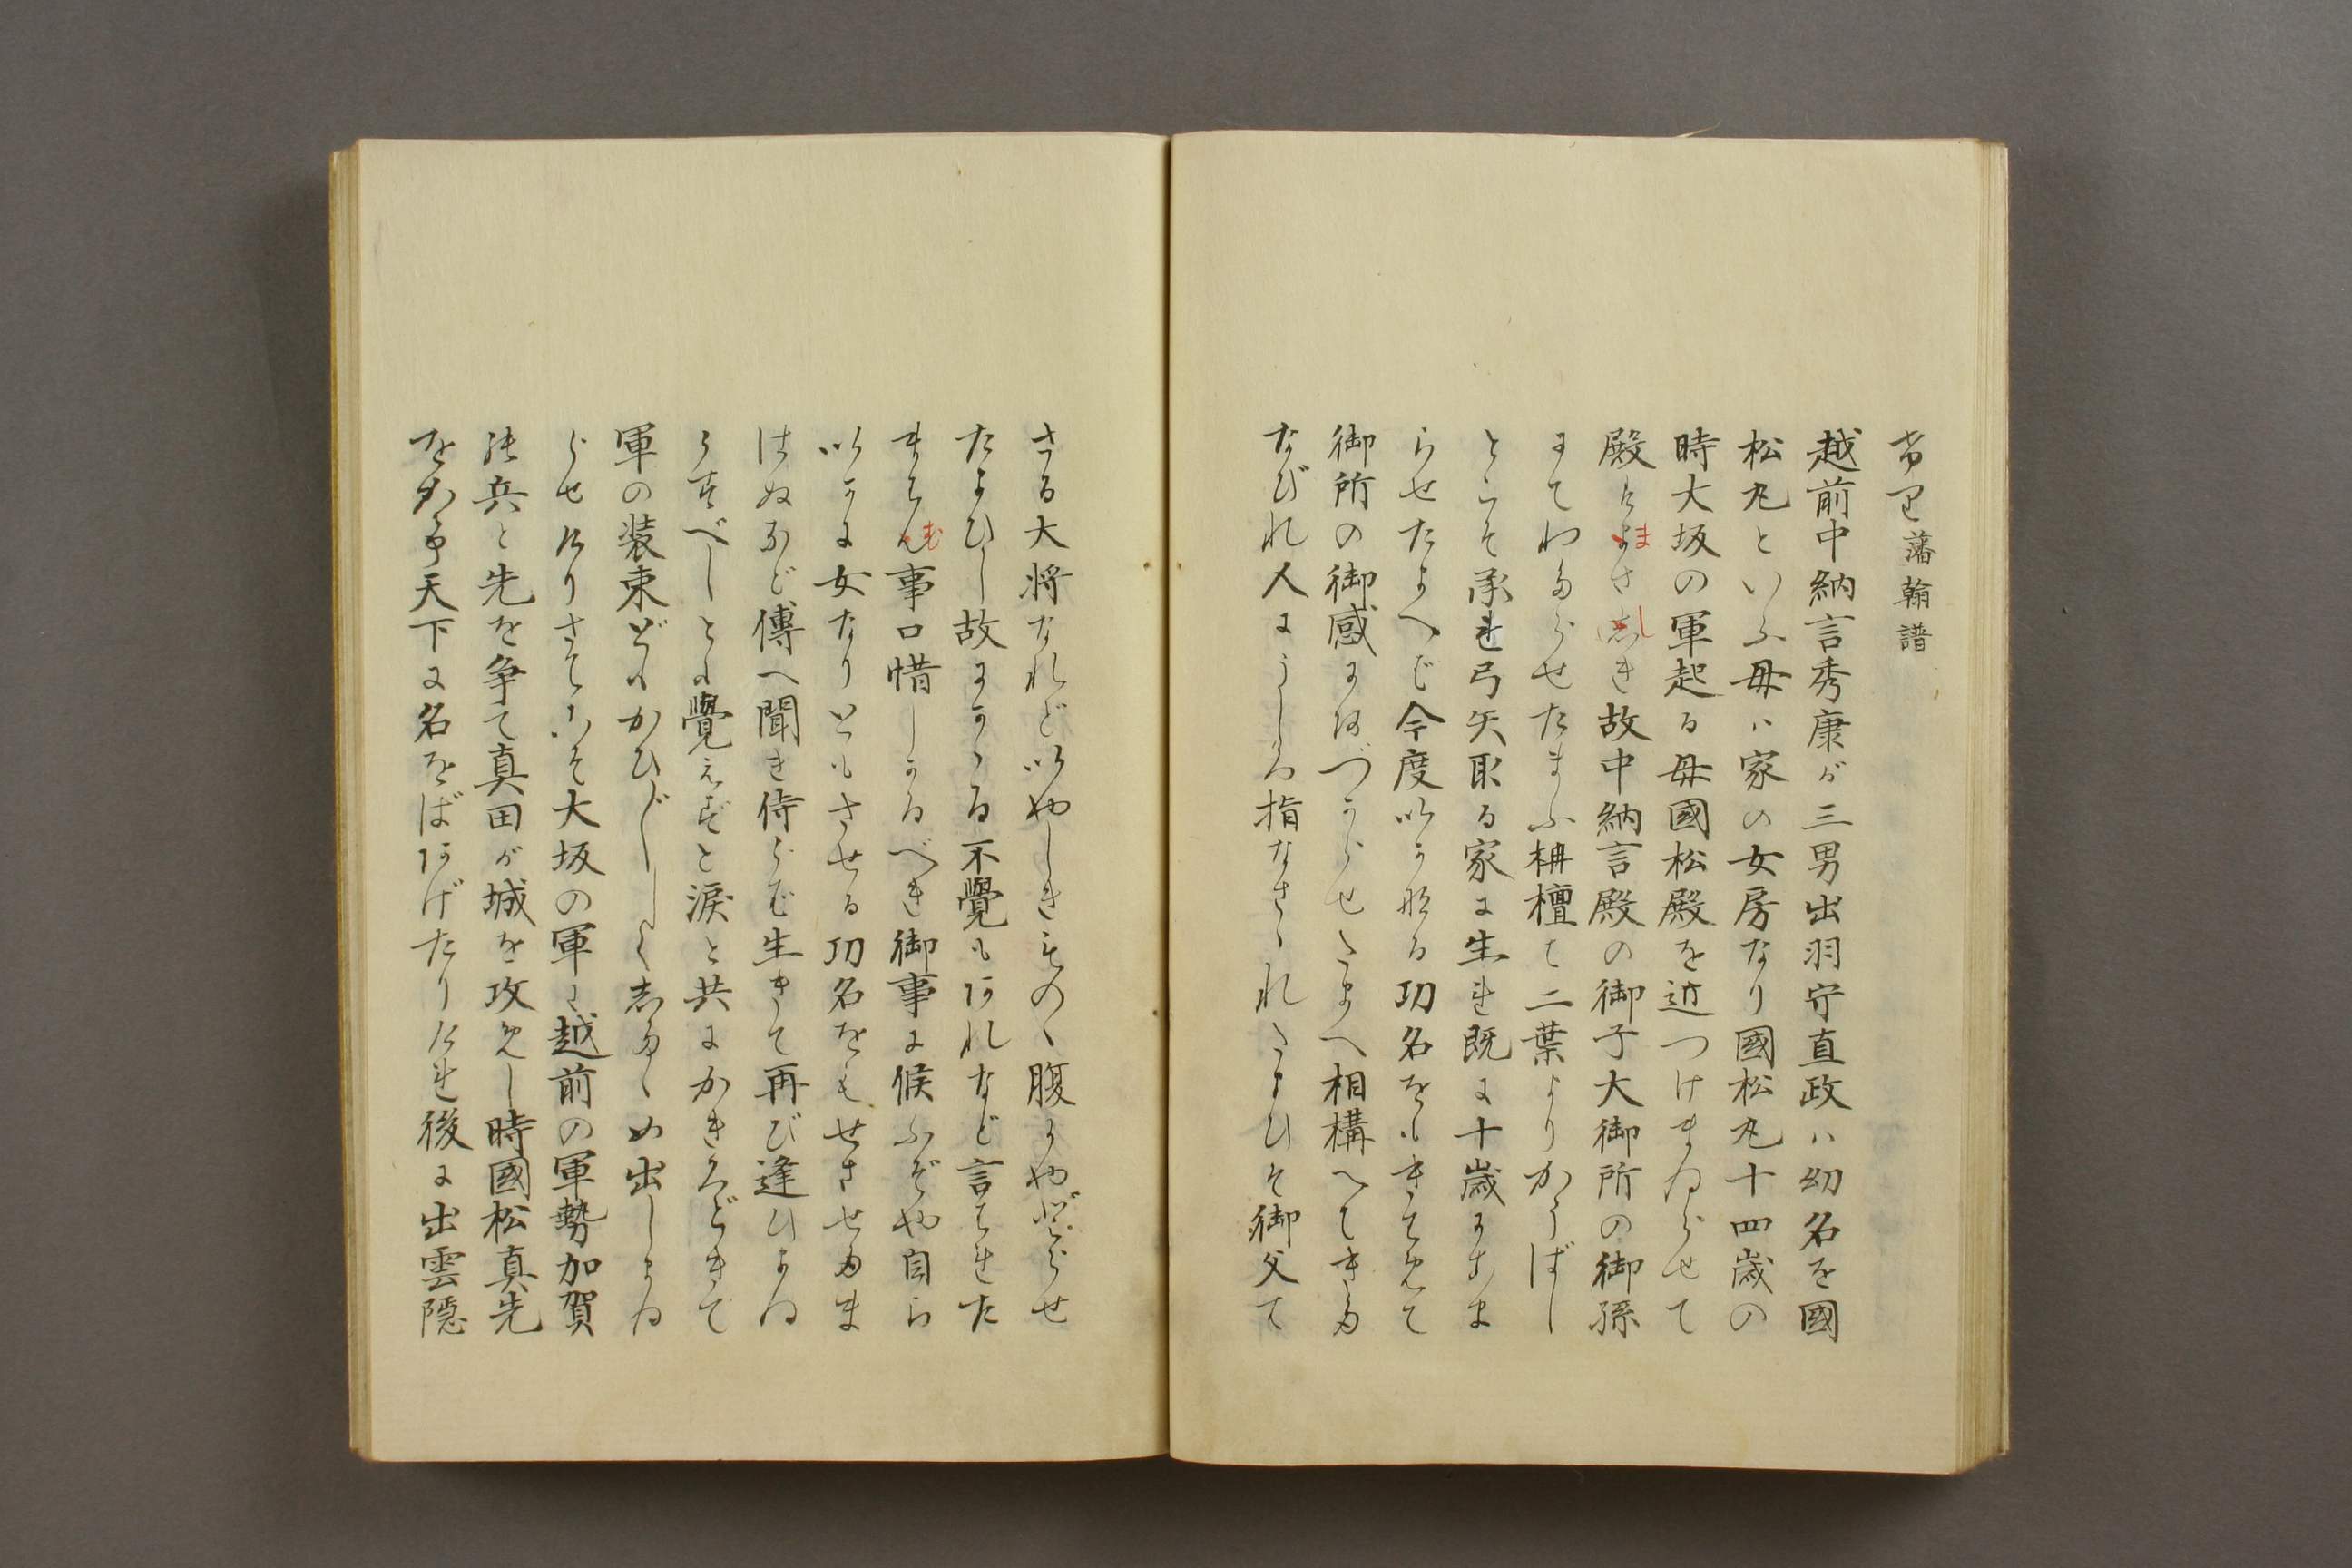 藩翰譜
越前中納言秀康が三男出羽守直政ハ幼名を國
松丸といふ母ハ家の女房なり國松丸十四歳の
時大坂の軍起る母國松殿を近つけまゐらせて
殿はまさしき故中納言殿の御子大御所の御孫
にてわたらせたまふ栴檀は二葉よりかうばし
とこそ承れ弓矢取る家に生れ既に十歳にあま
らせたまへば今度いかなる功名をもきはめて
御所の御感にあづからせたまへ相構へてきた
なびれ人にうしろ指なさゝれたまひそ御父は
さる大将なれどいやしきものゝ腹にやどらせ
たまひし故にかゝる不覺もあれなど言はれた
まはん事口惜しかるべき御事に候ふぞや自ら
いかに女なりともさせる功名をもせさせたま
はぬなど傳へ聞き侍らば生きて再び逢ひまゐ
らすべしとも覺えずと涙と共にかきくどきて
軍の装束どもかひ〴〵しくしたゝめ出しまゐ
らせけりさてこそ大坂の軍に越前の軍勢加賀
の兵と先を争て真田が城を攻めし時國松真先
をかけ天下に名をばあげたりけれ後に出雲隠